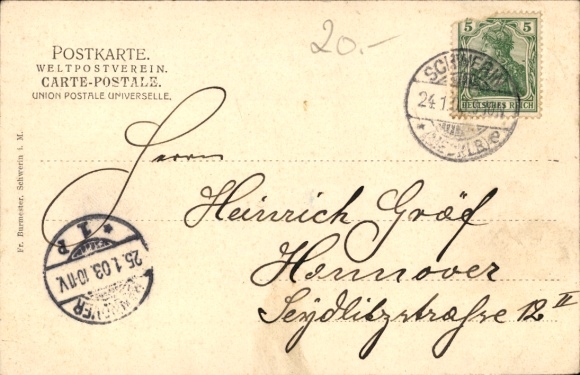 20.-
POSTKARTE.
WELTPOSTVEREIN.
CARTE-POSTALE.
UNION POSTALE UNIVERSELLE.
5 5
DEUTSCHES REICH
SCHWERIN
24.1.
Fr. Burmester, Schwerin i. M.
Herrn
Heinrich Gräf
Hannover
Seydlitzstraſse 12 II
HANNOVER
25.1.03.10-11V.
* 1 P